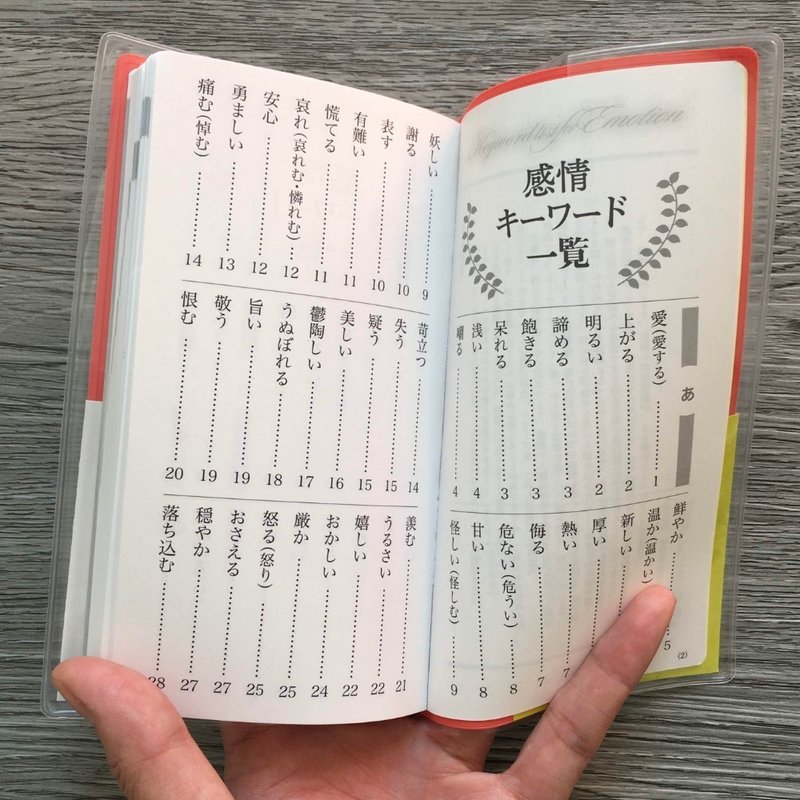 Keyword list for Emotion
感情
キーワード
一覧
あ
愛(愛する)……1
上がる……2
明るい……2
諦める……3
飽きる……3
呆れる……3
浅い……4
嘲る……4
鮮やか……5
温か(温かい)
新しい……
厚い……
熱い……7
侮る……7
危ない(危うい)……8
甘い……8
怪しい(怪しむ)……9
(2)
妖しい……9
謝る……10
表す……10
有難い……11
慌てる……11
哀れ(哀れむ・憐れむ)……12
安心……12
勇ましい……13
痛む(悼む)……14
苛立つ……14
失う……15
疑う……15
美しい……16
鬱陶しい……17
うぬぼれる……18
旨い……19
敬う……19
恨む……20
羨む……21
うるさい……22
嬉しい……22
おかしい……24
厳か……25
怒る(怒り)……25
おさえる……27
穏やか……27
落ち込む……28